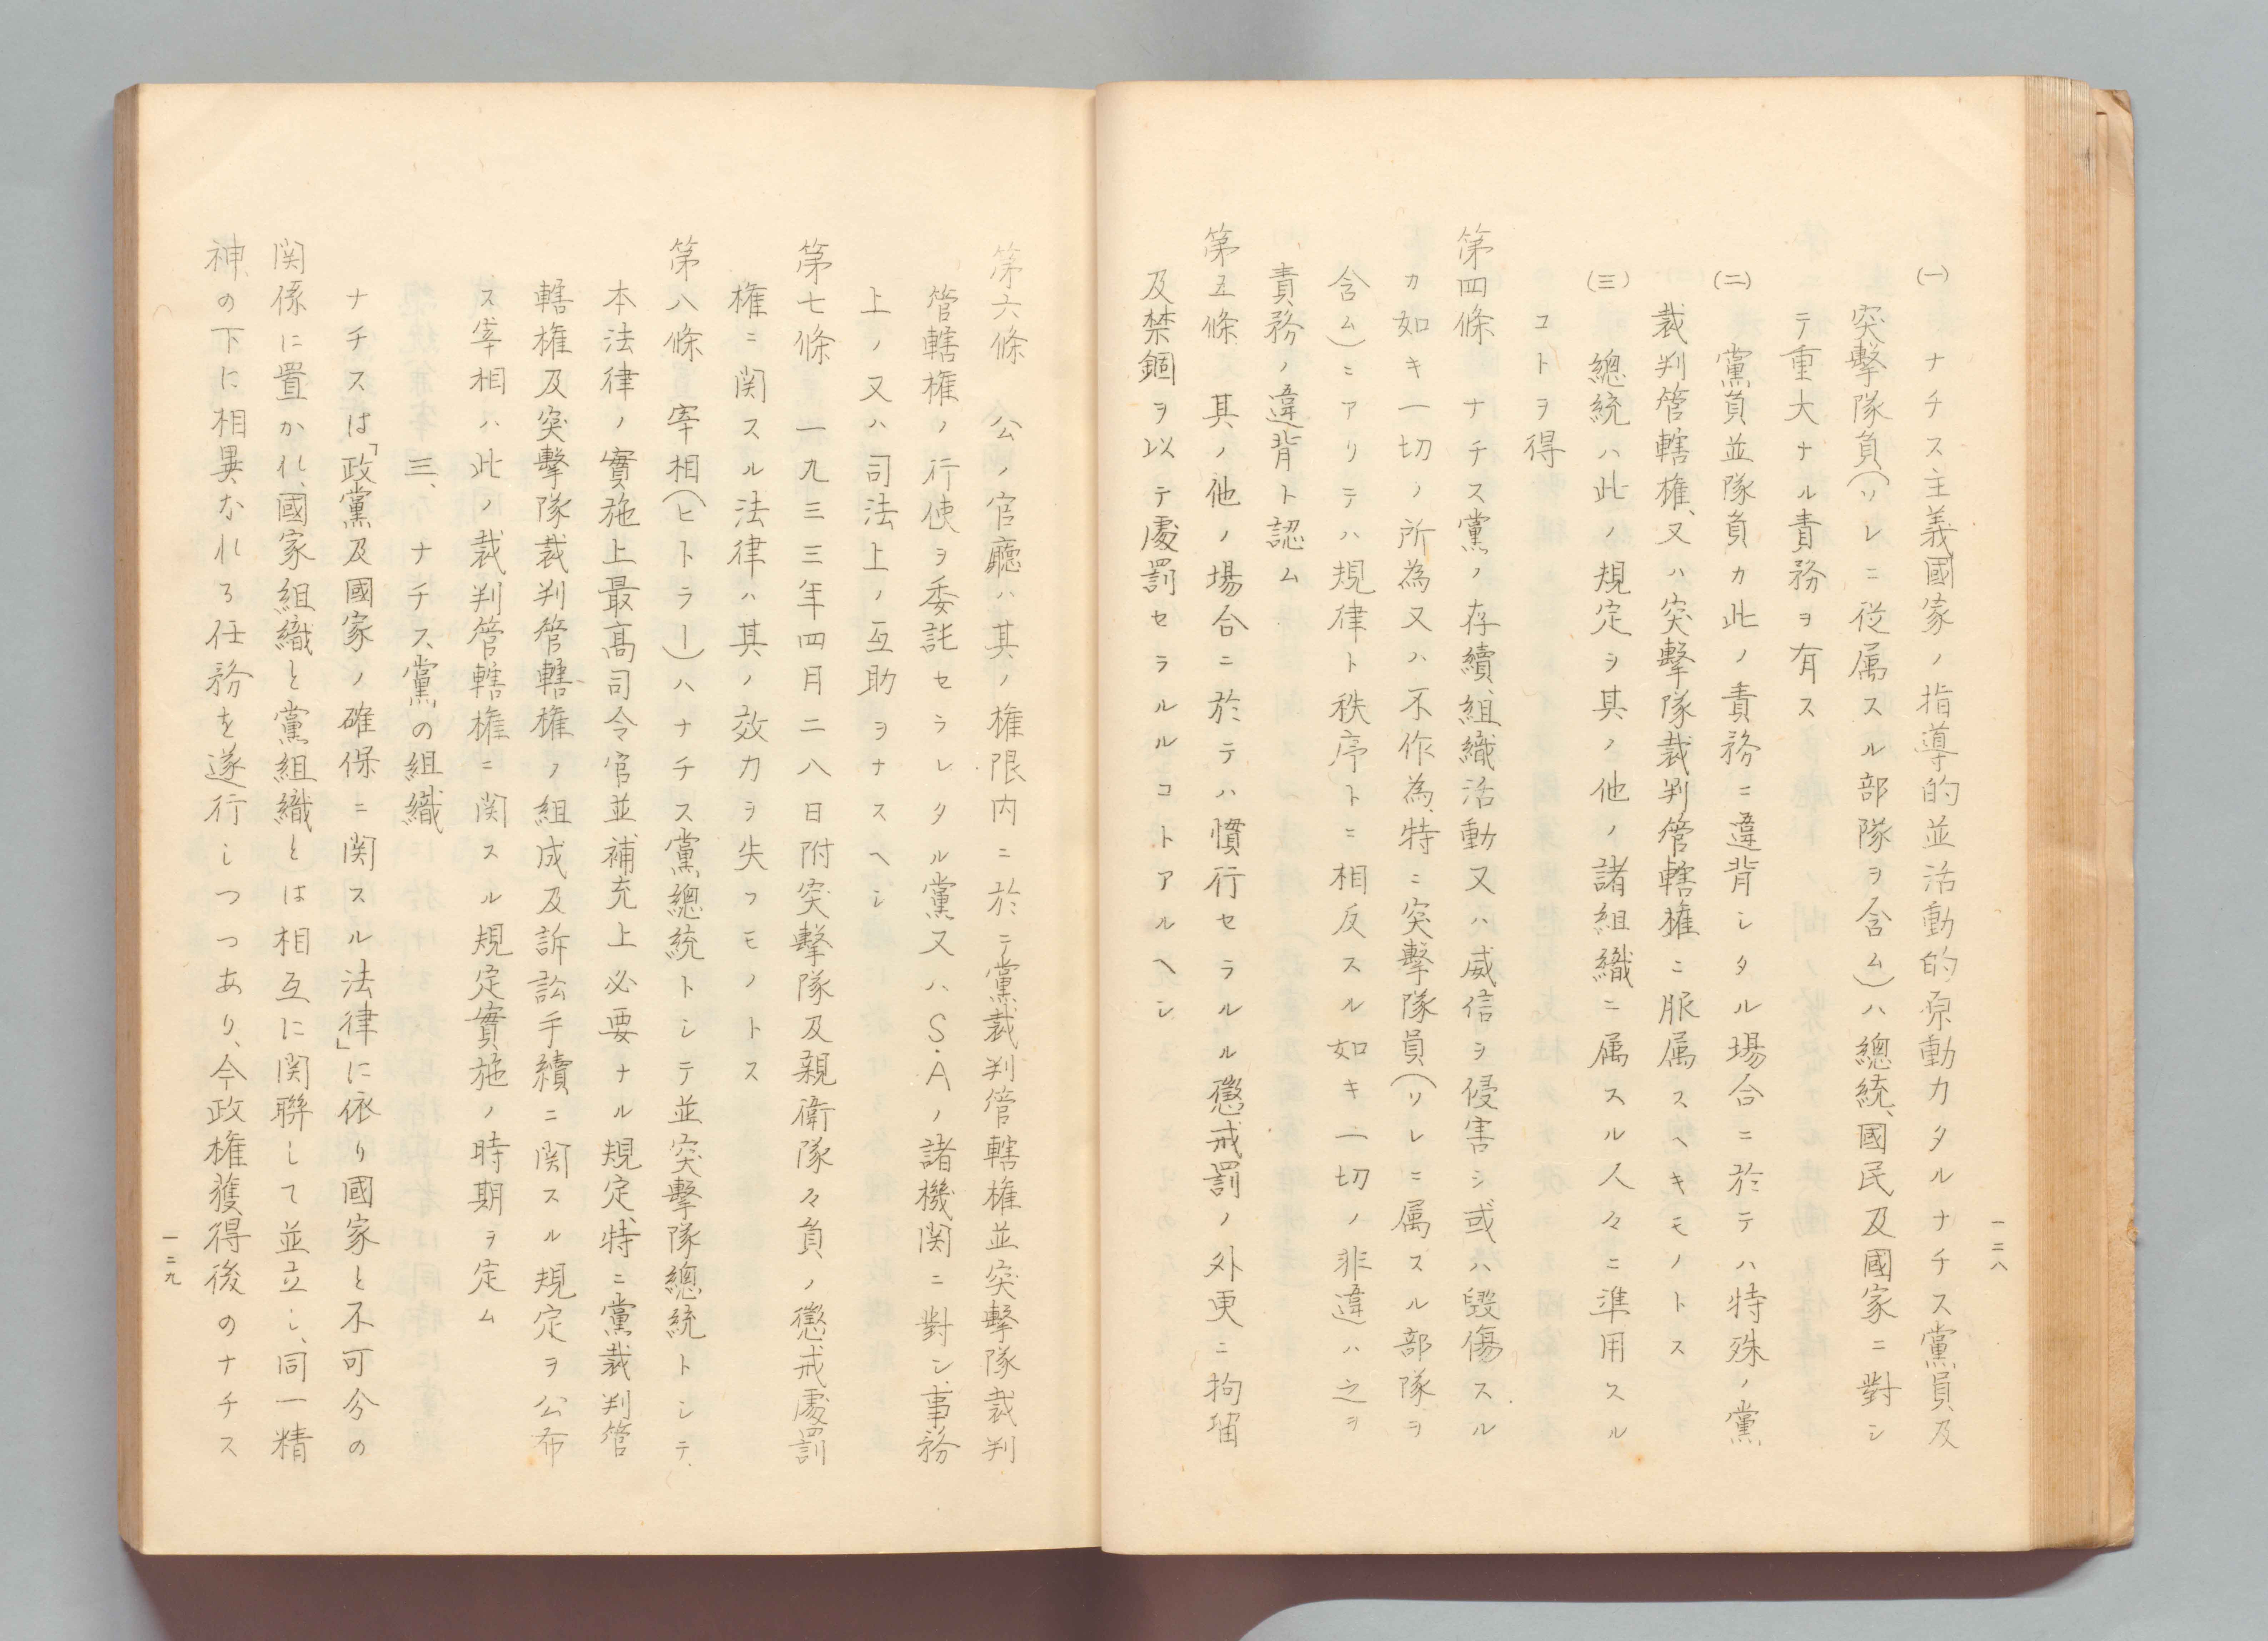 一二八
(一) ナチス主義國家ノ指導的並活動的原動力タルナチス黨員及
突擊隊員(ソレニ從属スル部隊ヲ含ム)ハ總統、國民及國家ニ對シ
テ重大ナル責務ヲ有ス
(二) 黨員並隊員カ此ノ責務ニ違背シタル場合ニ於テハ特殊ノ黨
裁判管轄権、又ハ突擊隊裁判管轄権ニ服属スヘキモノトス
(三) 總統ハ此ノ規定ヲ其ノ他ノ諸組織ニ属スル人々ニ準用スル
コトヲ得
第四條 ナチス黨ノ存續、組織活動又ハ威信ヲ侵害シ或ハ毀傷スル
カ如キ一切ノ所為又ハ不作為、特ニ突擊隊員(ソレニ属スル部隊ヲ
含ム)ニアリテハ規律ト秩序トニ相反スル如キ一切ノ非違ハ之ヲ
責務ノ違背ト認ム
第五條 其ノ他ノ場合ニ於テハ慣行セラルル懲戒罰ノ外更ニ拘留
及禁錮ヲ以テ處罰セラルルコトアルヘシ
第六條 公ノ官廳ハ其ノ権限内ニ於テ黨裁判管轄権並突擊隊裁判
管轄権ノ行使ヲ委託セラレタル黨又ハS.A.ノ諸機関ニ對シ事務
上ノ又ハ司法上ノ互助ヲナスヘシ
第七條 一九三三年四月二八日附突擊隊及親衛隊々員ノ懲戒處罰
権ニ関スル法律ハ其ノ效力ヲ失フモノトス
第八條 宰相(ヒトラー)ハナチス黨總統トシテ並突擊隊總統トシテ、
本法律ノ實施上最高司令官並補充上必要ナル規定、特ニ黨裁判管
轄権及突擊隊裁判管轄権ノ組成及訴訟手續ニ関スル規定ヲ公布
ス宰相ハ此ノ裁判管轄権ニ関スル規定實施ノ時期ヲ定ム
三、ナチス黨の組織
ナチスは「政黨及國家ノ確保ニ関スル法律」に依り國家と不可分の
関係に置かれ、國家組織と黨組織とは相互に関聯して並立し、同一精
神の下に相異なれる任務を遂行しつつあり、今政権獲得後のナチス
一二九